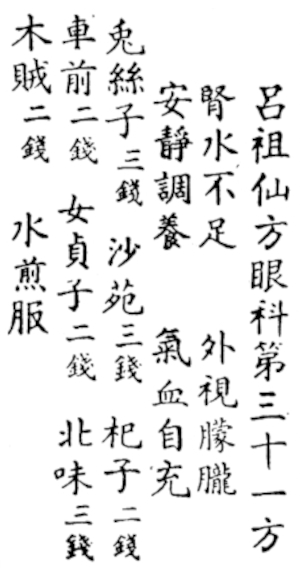 呂祖仙方眼科第三十一方
腎水不足 外視朦朧
安靜調養 氣血自充
兎絲子三錢 沙苑三錢 杞子二錢
車前二錢 女貞子二錢 北味三錢
木賊二錢 水煎服